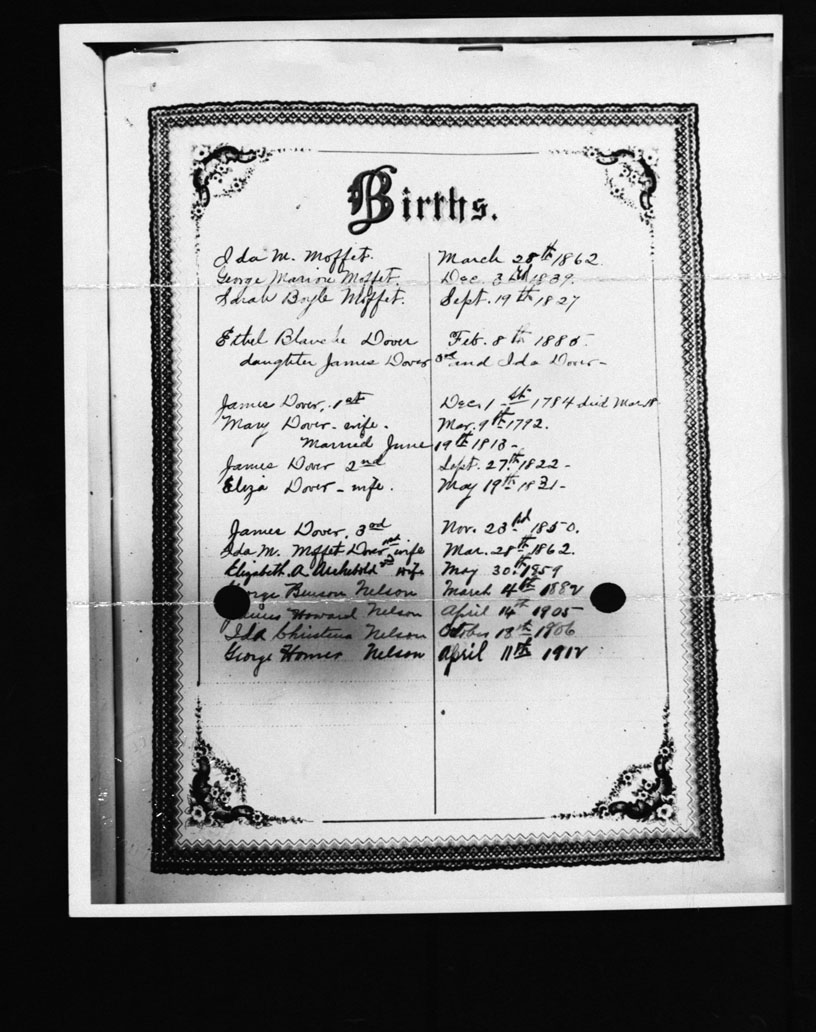 Births.
Ida M. Moffet. March 28th 1862.
George Marion Moffet. Dec. 3rd 1839.
Sarah Boyle Moffet. Sept. 19th 1827
Ethel Blanche Dover Feb. 8th 1885.
daughter James Dover 3rd and Ida Dover-
James Dover, 1st Dec. 1st 1784 died Mar. 18
Mary Dover - wife. Mar. 9th 1792.
Married June 19th 1813-
James Dover 2nd Sept. 27th 1822-
Eliza Dover - wife. May 19th 1821-
James Dover, 3rd Nov. 23rd 1850.
Ida M. Moffet Dover wife Mar. 28th 1862.
Elizabeth A Archibold 2nd wife May 30th 1859
Benson Nelson March 4th 1882
Howard Nelson April 14th 1905
Ida Christena Nelson October 18th 1906
George Homer Nelson April 11th 1912